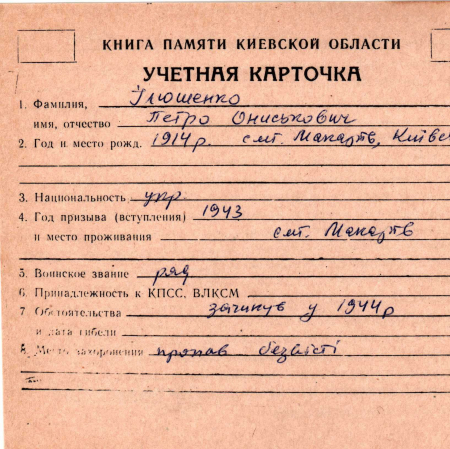 КНИГА ПАМЯТИ КИЕВСКОЙ ОБЛАСТИ
УЧЕТНАЯ КАРТОЧКА
1. Фамилия, Ілюшенко
имя, отчество Петро Ониськович
2. Год и место рожд. 1914 р. смт. Макарів, Київсь
3. Национальность укр.
4. Год призыва (вступления) 1943
и место проживания смт. Макарів
5. Воинское звание ряд
6. Принадлежность к КПСС, ВЛКСМ
7 Обстоятельства загинув у 1944 р
и дата гибели
8. Место захоронения пропав безвісті